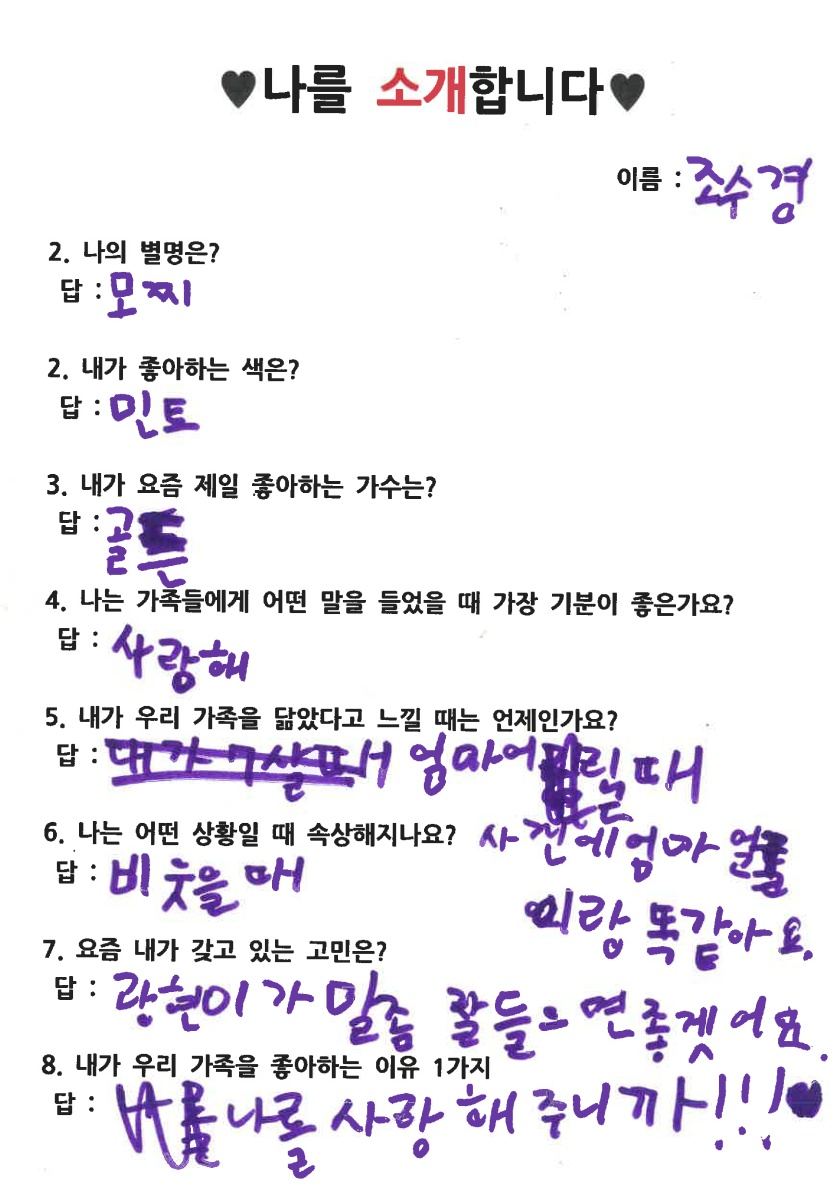 ♥나를 소개합니다♥
이름 : 조수경
2. 나의 별명은?
답 : 모찌
2. 내가 좋아하는 색은?
답 : 민토
3. 내가 요즘 제일 좋아하는 가수는?
답 : 골든
4. 나는 가족들에게 어떤 말을 들었을 때 가장 기분이 좋은가요?
답 : 사랑해
5. 내가 우리 가족을 닮았다고 느낄 때는 언제인가요?
답 : 내가 7살때 엄마어릴때
사진에엄마 얼
이랑 똑같아요.
6. 나는 어떤 상황일 때 속상해지나요?
답 : 비웃을 때
7. 요즘 내가 갖고 있는 고민은?
답 : 광현이가 말좀 잘들으면좋겟어요.
8. 내가 우리 가족을 좋아하는 이유 1가지
답 : 나를 사랑해주니까!!!♥